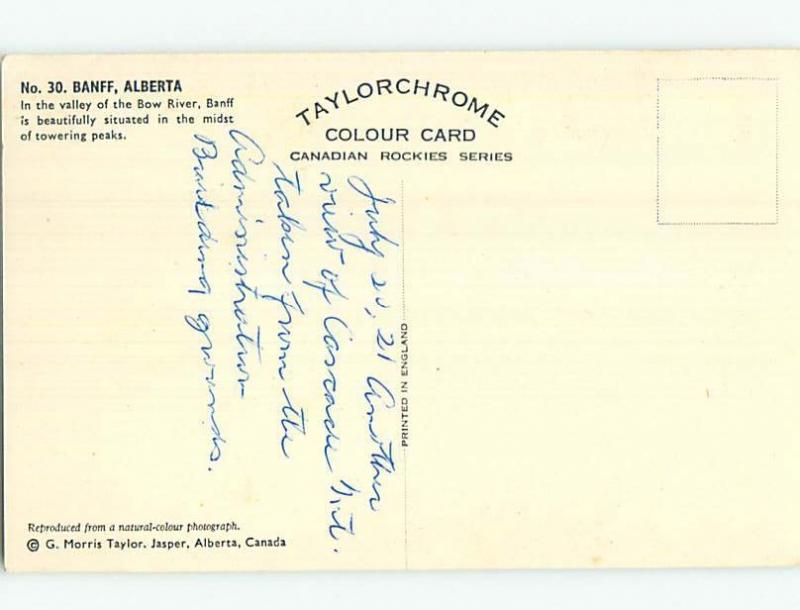 No. 30. BANFF, ALBERTA
In the valley of the Bow River, Banff
is beautifully situated in the midst
of towering peaks.
TAYLORCHROME
COLOUR CARD
CANADIAN ROCKIES SERIES
July 20, 21 Another
view of Cascade Mt.
taken from the
Administration
Building grounds.
PRINTED IN ENGLAND
Reproduced from a natural-colour photograph.
© G. Morris Taylor. Jasper, Alberta, Canada